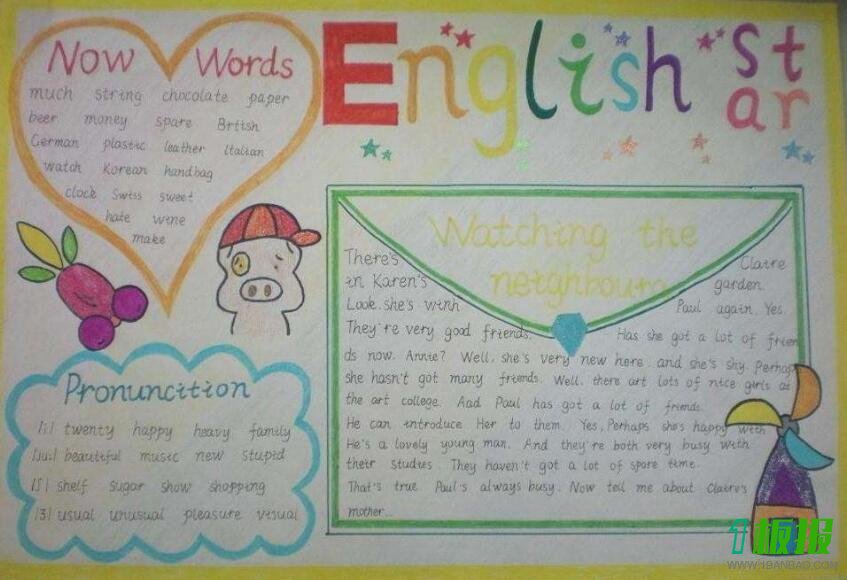 English Star
Now Words
much string chocolate paper
beer money spare Brtish
German plastic leather Italian
watch Korean handbag
clock Swiss sweet
hate wine
make
Watching the
neighbours
There's Claire
in Karen's garden.
Look, she's winh Paul again. Yes.
They're very good friends. Has she got a lot of frien
ds now. Annie? Well, she's very new here and she's shy. Perhap
she hasn't got many friends. Well, there art lots of nice girls at
the art college. Aad Paul has got a lot of friends.
He can introduce Her to them. Yes, Perhaps she's happy with
He's a lovely young man. And they're both very busy with
their studies. They haven't got a lot of spare time.
That's true. Paul's always busy. Now tell me about Claire's
mother...
Pronuncition
/i/ twenty happy heavy family
/ju:/ beautiful music new stupid
/ʃ/ shelf sugar show shopping
/ʒ/ usual unusual pleasure visual
1板报
WWW.1BANBAO.COM